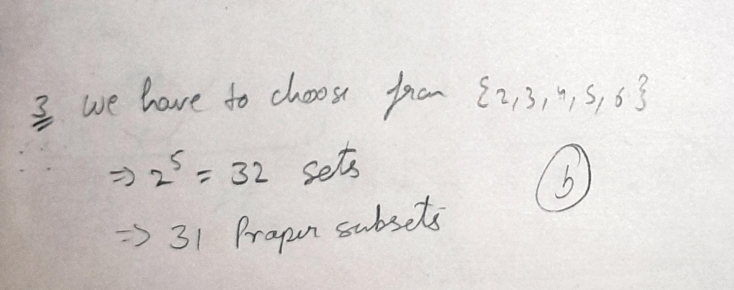 3 we have to choose from {2,3,4,5,6}
⇒ 2⁵ = 32 sets
(b)
⇒ 31 Proper subsets